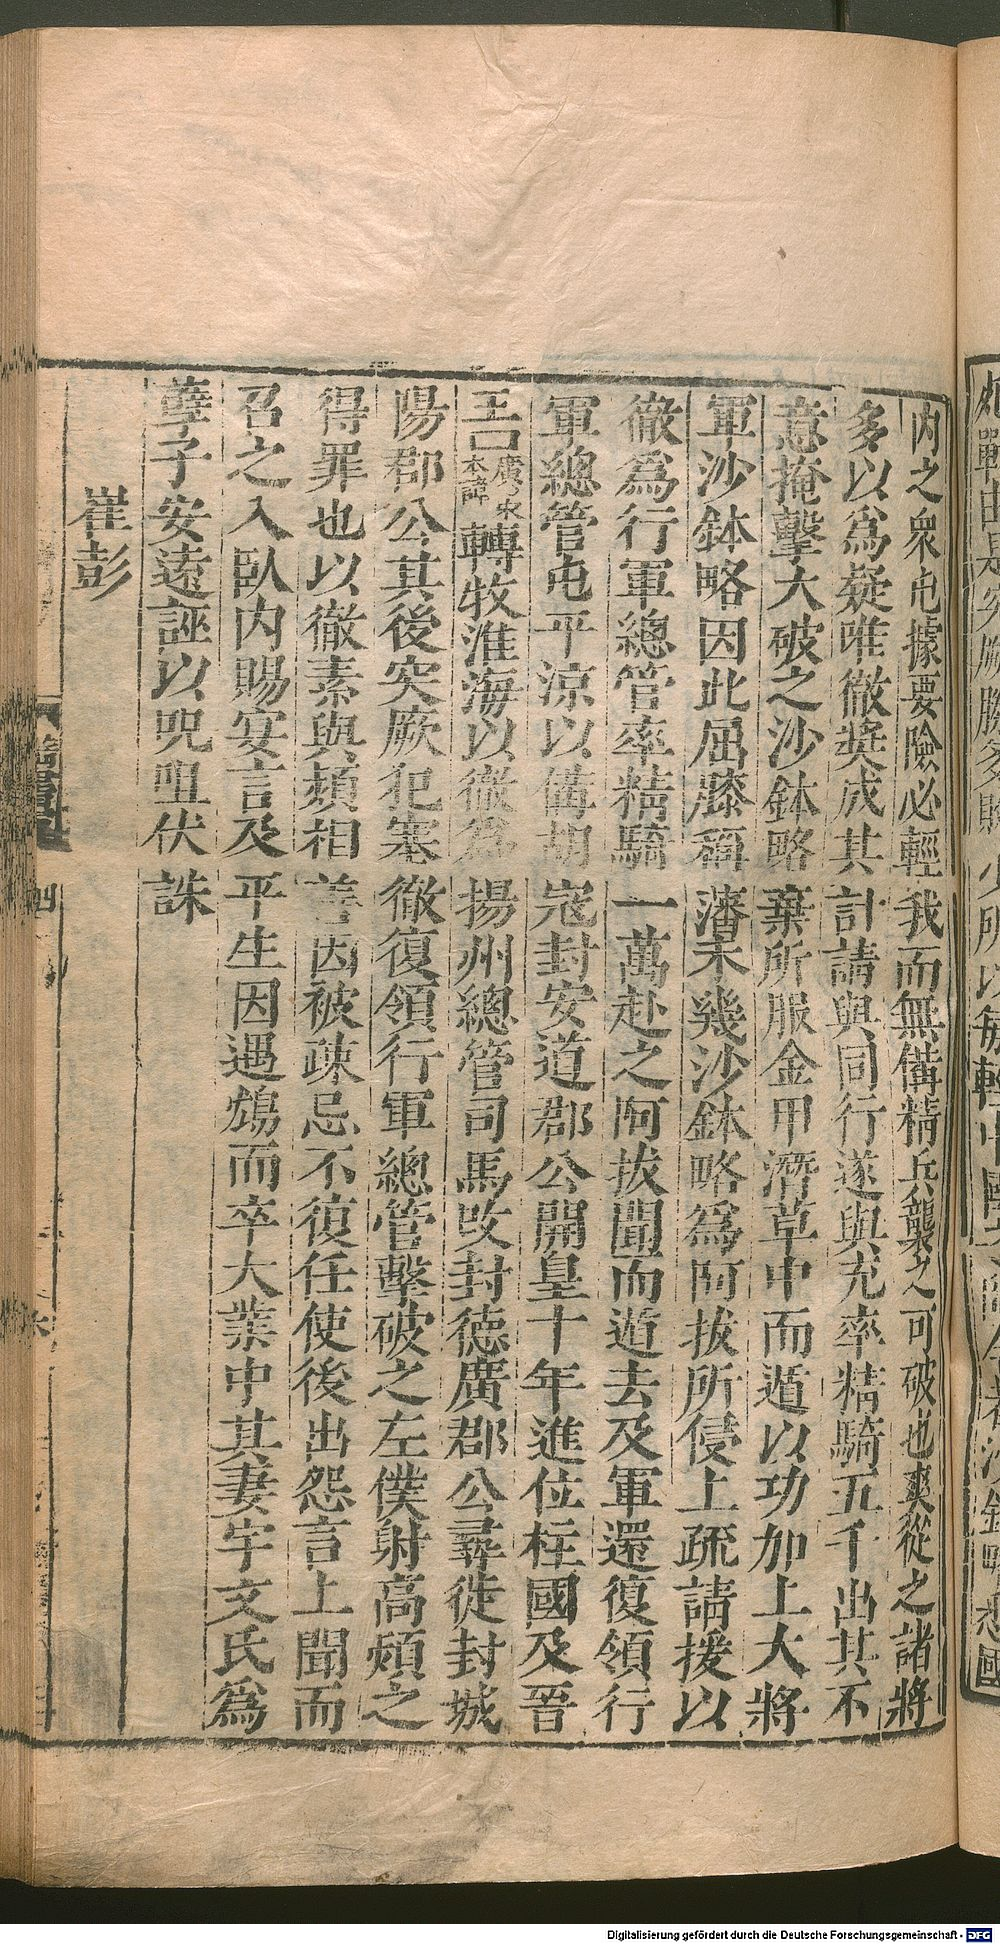 內之衆屯據要險必輕我而無備精兵襲之可破也爽從之諸將
多以爲疑唯徹奬成其計請與同行遂與充率精騎五千出其不
意掩擊大破之沙鉢略棄所服金甲潛草中而遁以功加上大將
軍沙鉢略因此屈膝稱藩未幾沙鉢略爲阿拔所侵上疏請援以
徹爲行軍總管率精騎一萬赴之阿拔聞而遁去及軍還復領行
軍總管屯平涼以備胡寇封安道郡公開皇十年進位柱國及晉
王口廣乃宋本諱轉牧淮海以徹爲揚州總管司馬攺封德廣郡公尋徙封城
陽郡公其後突厥犯塞徹復領行軍總管擊破之左僕射高熲之
得罪也以徹素與熲相善因被疎忌不復任使後出怨言上聞而
召之入臥內賜宴言及平生因遇鴆而卒大業中其妻宇文氏爲
孽子安遠誣以咒咀伏誅
崔彭
Digitalisierung gefördert durch die Deutsche Forschungsgemeinschaft - DFG